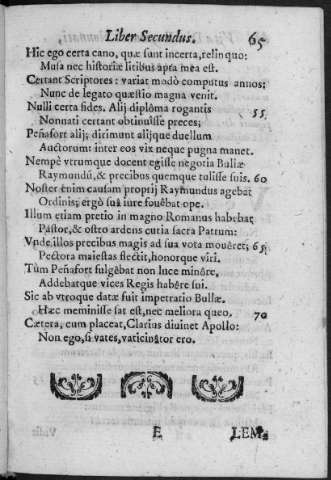 Liber Secundus. 65
Hic ego certa cano, quæ sunt incerta, relinquo:
Musa nec historiæ litibus apta mea est.
Certant Scriptores: variat modò computus annos;
Nunc de legato quæstio magna venit.
Nulli certa fides. Alij diplôma rogantis 55
Nonnati certant obtinuisse preces;
Peñafort alij; dirimunt alijque duellum
Auctorum: inter eos vix neque pugna manet.
Nempè vtrumque docent egisse negotia Bullæ
Raymundũ, & precibus quemque tulisse suis. 60
Noster enim causam proprij Raymundus agebat
Ordinis; ergò suâ iure fouêbat ope.
Illum etiam pretio in magno Romanus habebat
Pastor, & ostro ardens curia sacra Patrum:
Vnde illos precibus magis ad sua vota mouêret; 65
Pectora maiestas flectit, honorque viri.
Tùm Peñafort fulgêbat non luce minôre,
Addebatque vices Regis habêre sui.
Sic ab vtroque datæ fuit impetratio Bullæ.
Hæc meminisse sat est, nec meliora queo. 70
Cætera, cum placeat, Clarius diuinet Apollo:
Non ego, si vates, vaticinâtor ero.
E LEM-